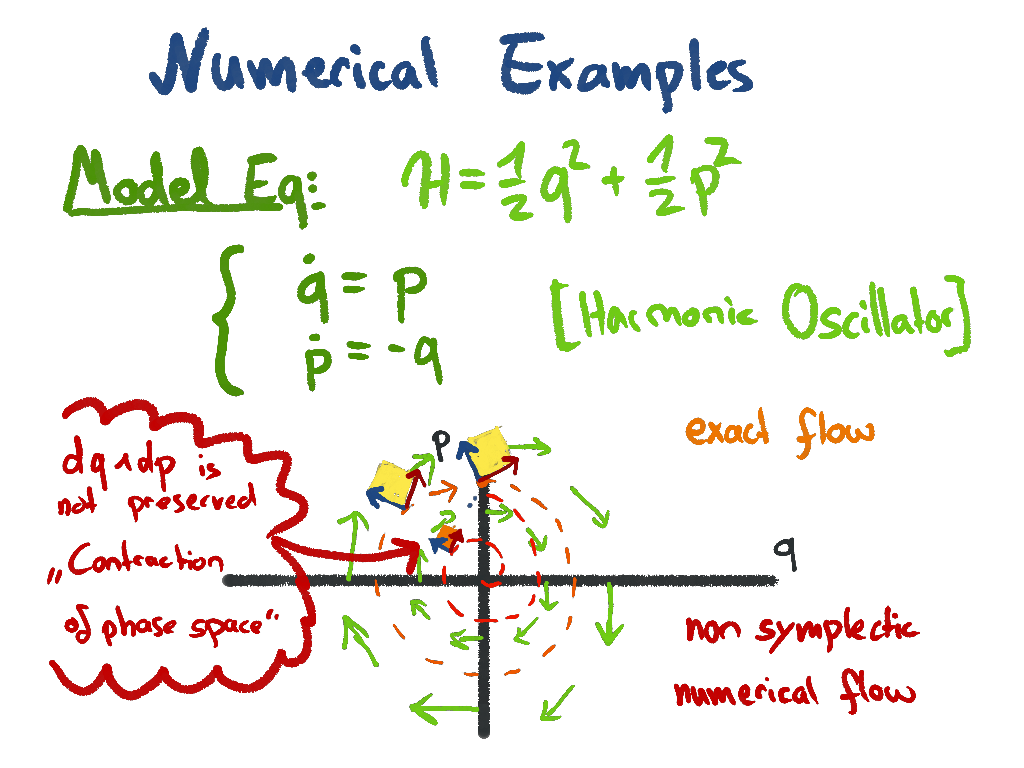 Numerical Examples
Model Eq: H = 1/2 q² + 1/2 p²
{ q̇ = p
ṗ = -q
[Harmonic Oscillator]
exact flow
dq∧dp is
not preserved
„Contraction
of phase space“
p
q
non symplectic
numerical flow